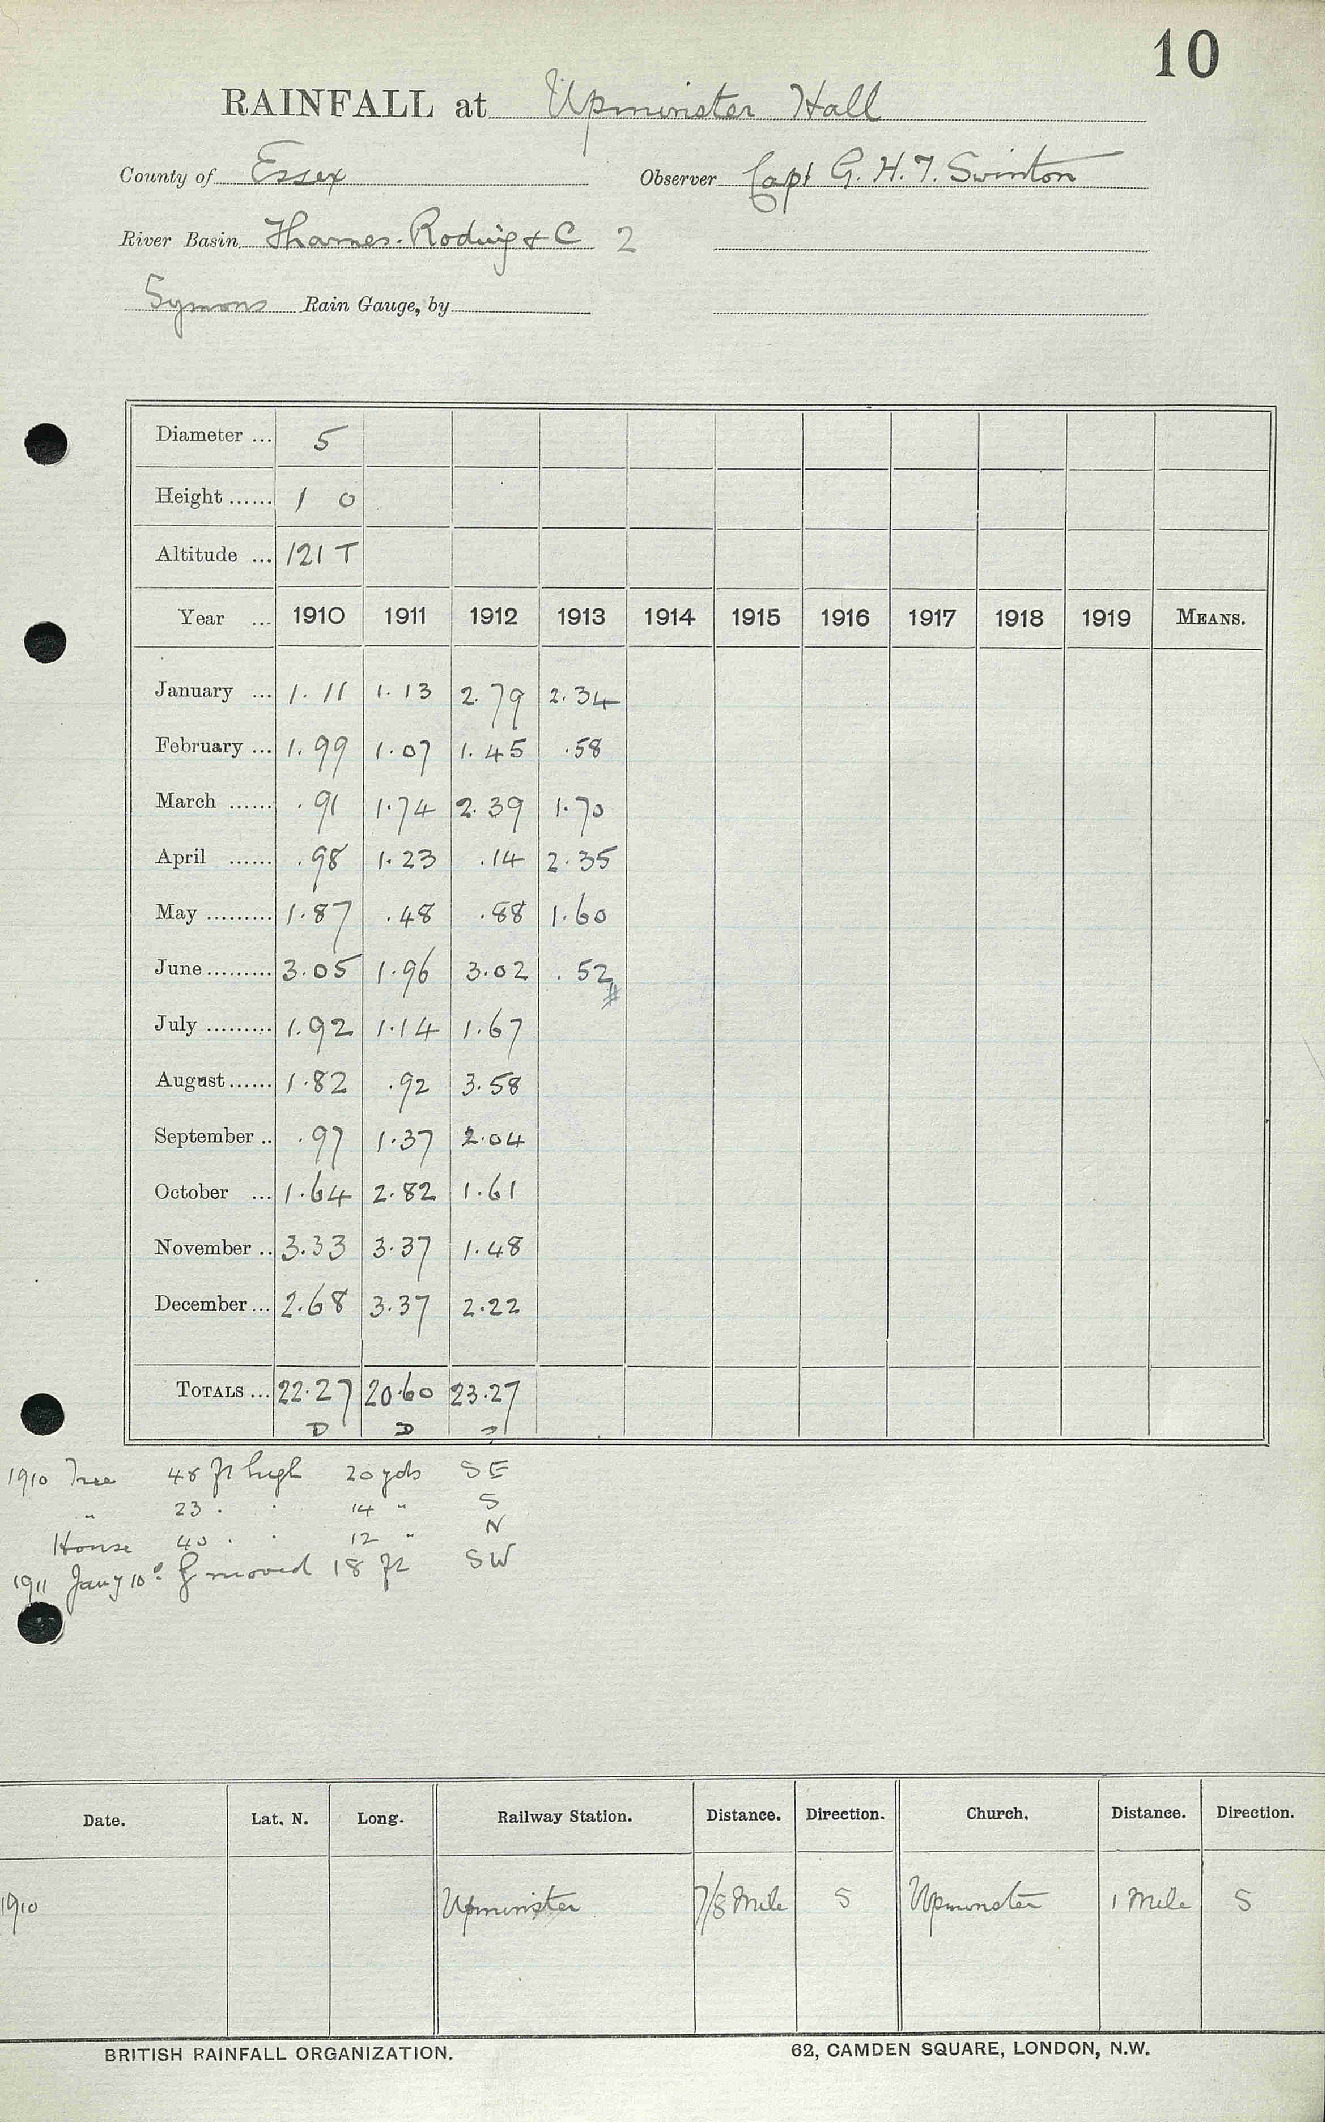 10
RAINFALL at Upminster Hall
County of Essex Observer Capt G. H. T. Swinton
River Basin Thames. Roding & C 2
Symons Rain Gauge, by
Diameter ... 5
Height ...... 1 0
Altitude ... 121 T
Year ... 1910 1911 1912 1913 1914 1915 1916 1917 1918 1919 MEANS.
January ... 1.11 1.13 2.79 2.34
February ... 1.99 1.07 1.45 .58
March ...... .91 1.74 2.39 1.70
April ...... .98 1.23 .14 2.35
May ......... 1.87 .48 .88 1.60
June ......... 3.05 1.96 3.02 .52
July ......... 1.92 1.14 1.67
August ...... 1.82 .92 3.58
September .. .97 1.37 2.04
October ... 1.64 2.82 1.61
November .. 3.33 3.37 1.48
December ... 2.68 3.37 2.22
TOTALS ... 22.27 20.60 23.27
D D
1910 Tree 48 ft high 20 yds SE
" 23 . . 14 " S
House 40 . . 12 " N
1911 Jany 10 G moved 18 ft SW
Date. Lat. N. Long. Railway Station. Distance. Direction. Church. Distance. Direction.
1910 Upminster 7/8 Mile S Upminster 1 Mile S
BRITISH RAINFALL ORGANIZATION. 62, CAMDEN SQUARE, LONDON, N.W.